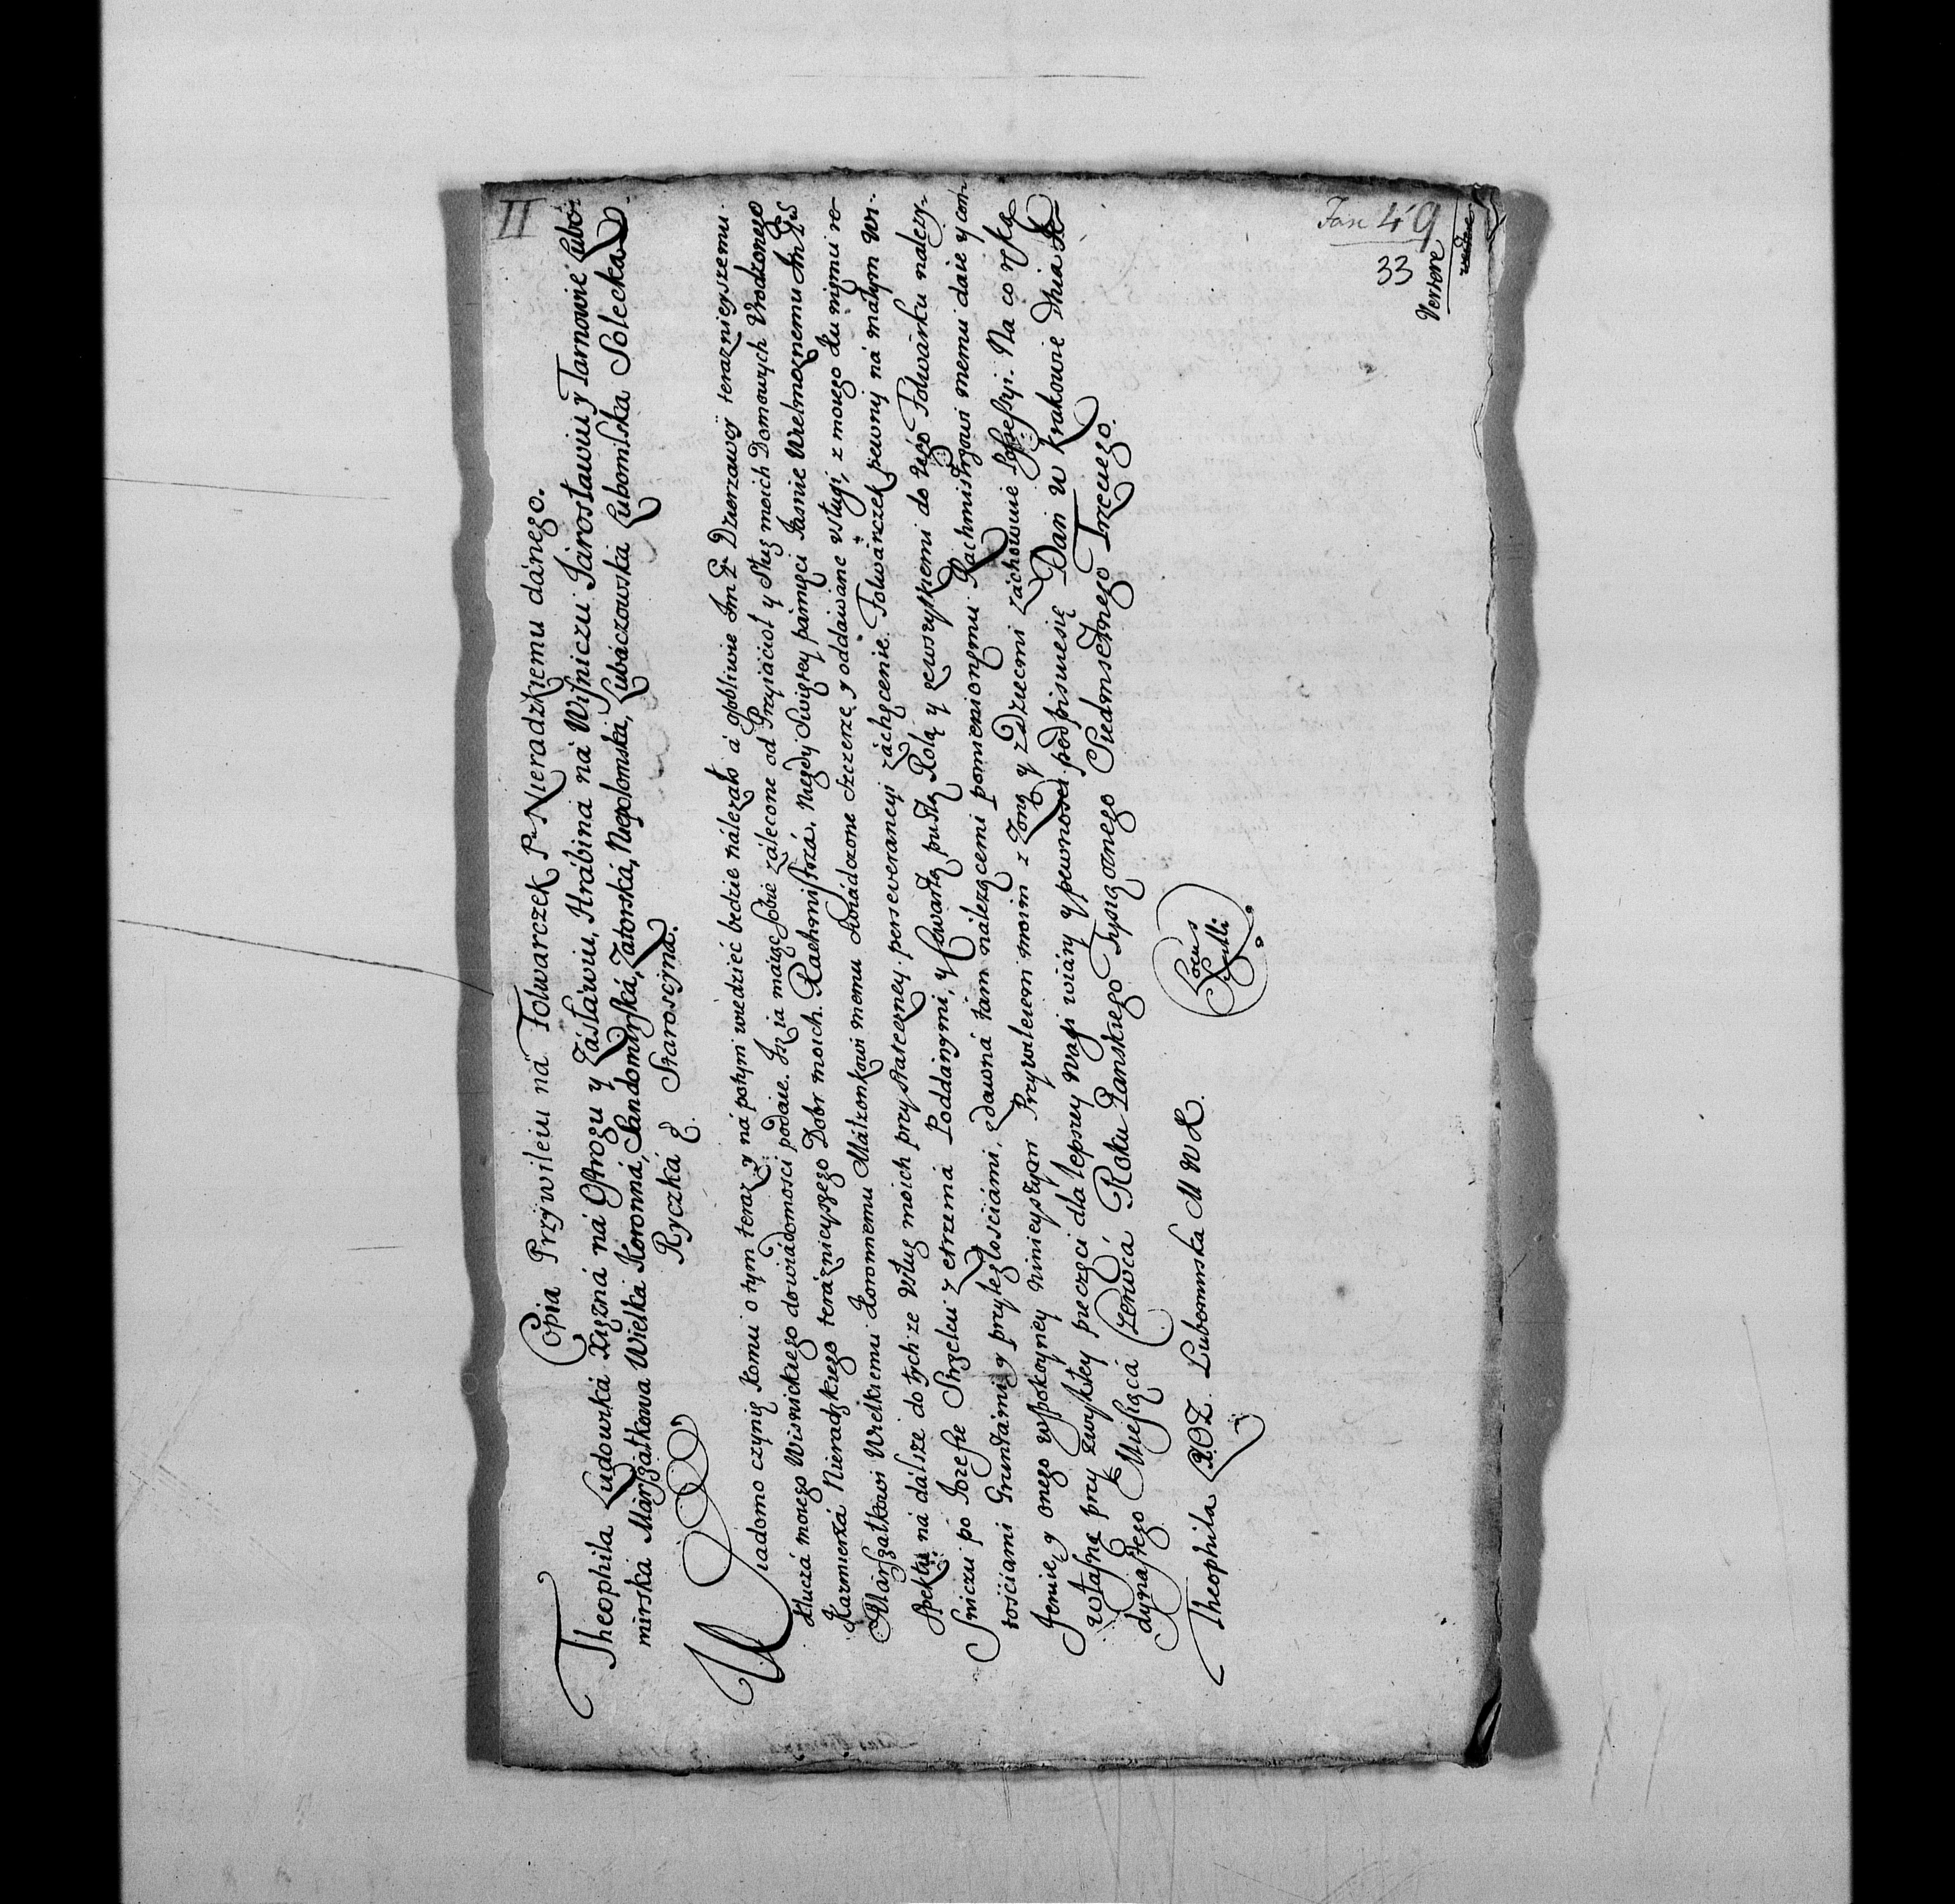 II
Copia Przywileiu ná Folwarczek P. Nieradzkiemu dánego.
Theophila Ludowika Xiężná ná Ostrogu y Zásławiu, Hrábina ná Wiśniczu Járosławiu y Tarnowie Lubo
mirska Márszałkowa Wielka Koronná, Sandomirska, Zatorská, Niepołomská, Lubáczowska Lubomlska Solecka
Ryczká &. Starościná.
Wiadomo czynię komu o tym teraz y ná potym wiedzieć bedzie nálezáło á osobliwie Im P. Dzierzawcy teraznieyszemu
Kluczá mego Wisnickiego do wiádomosci podáie. Iz ia máiąc sobie zálecone od Przyiácioł y Sług moich Domowych Vrodzonego
Kazmierzá Nieradzkiego teráznieyszego Dobr moich Rachmistrzá, Niegdy Swiętey pámięci Jasnie Wielmoznemu Im P.
Márszałkowi Wielkiemu Koronnemu Małzonkowi memu doswiádczone szczerze y oddáwáne vsługi, z mowego ku niemu re
spektu ná dálsze do tych ze vsług moich przy stateczney perseverancyi záchęcenie. Folwárczek pewny ná máłym Wi-
śniczu po Jozefie Strzelcu z trzemá Poddánymi, y Czwartą pustą Rolą y zewszytkiemi do tego Folwárku nálezy-
tościami Gruntámi y przyległościámi, zdawná tám nálezącemi pomienionemu Rachmistrzowi memu dáie y con-
feruię y onego wspokoyney ninieyszym Przywileiem moim z Zoną y z Dziecmi záchowuie possessyi. Na co ręką
własną przy zwykłey pieczęci dla lepszey wagi wiáry y pewności podpisuiesię Dan w Krakowie Dnia Ie
dynastego Miesiącá Czerwcá Roku Pańskiego Tysiącznego Siedmsetnego Trzeciego.
Theophila X.O.Z. Lubomirska M W K.
Locus
Sigilli
Fasc 49
33
Vertere